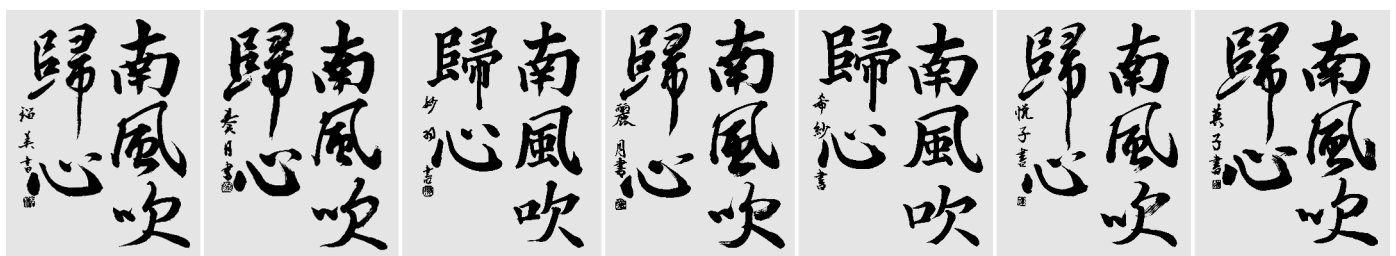 南風吹
歸心
美書
南風吹
歸心
葵月書
南風吹
歸心
妙 書
南風吹
歸心
麗月書
南風吹
歸心
希紗書
南風吹
歸心
悦子書
南風吹
歸心
英子書